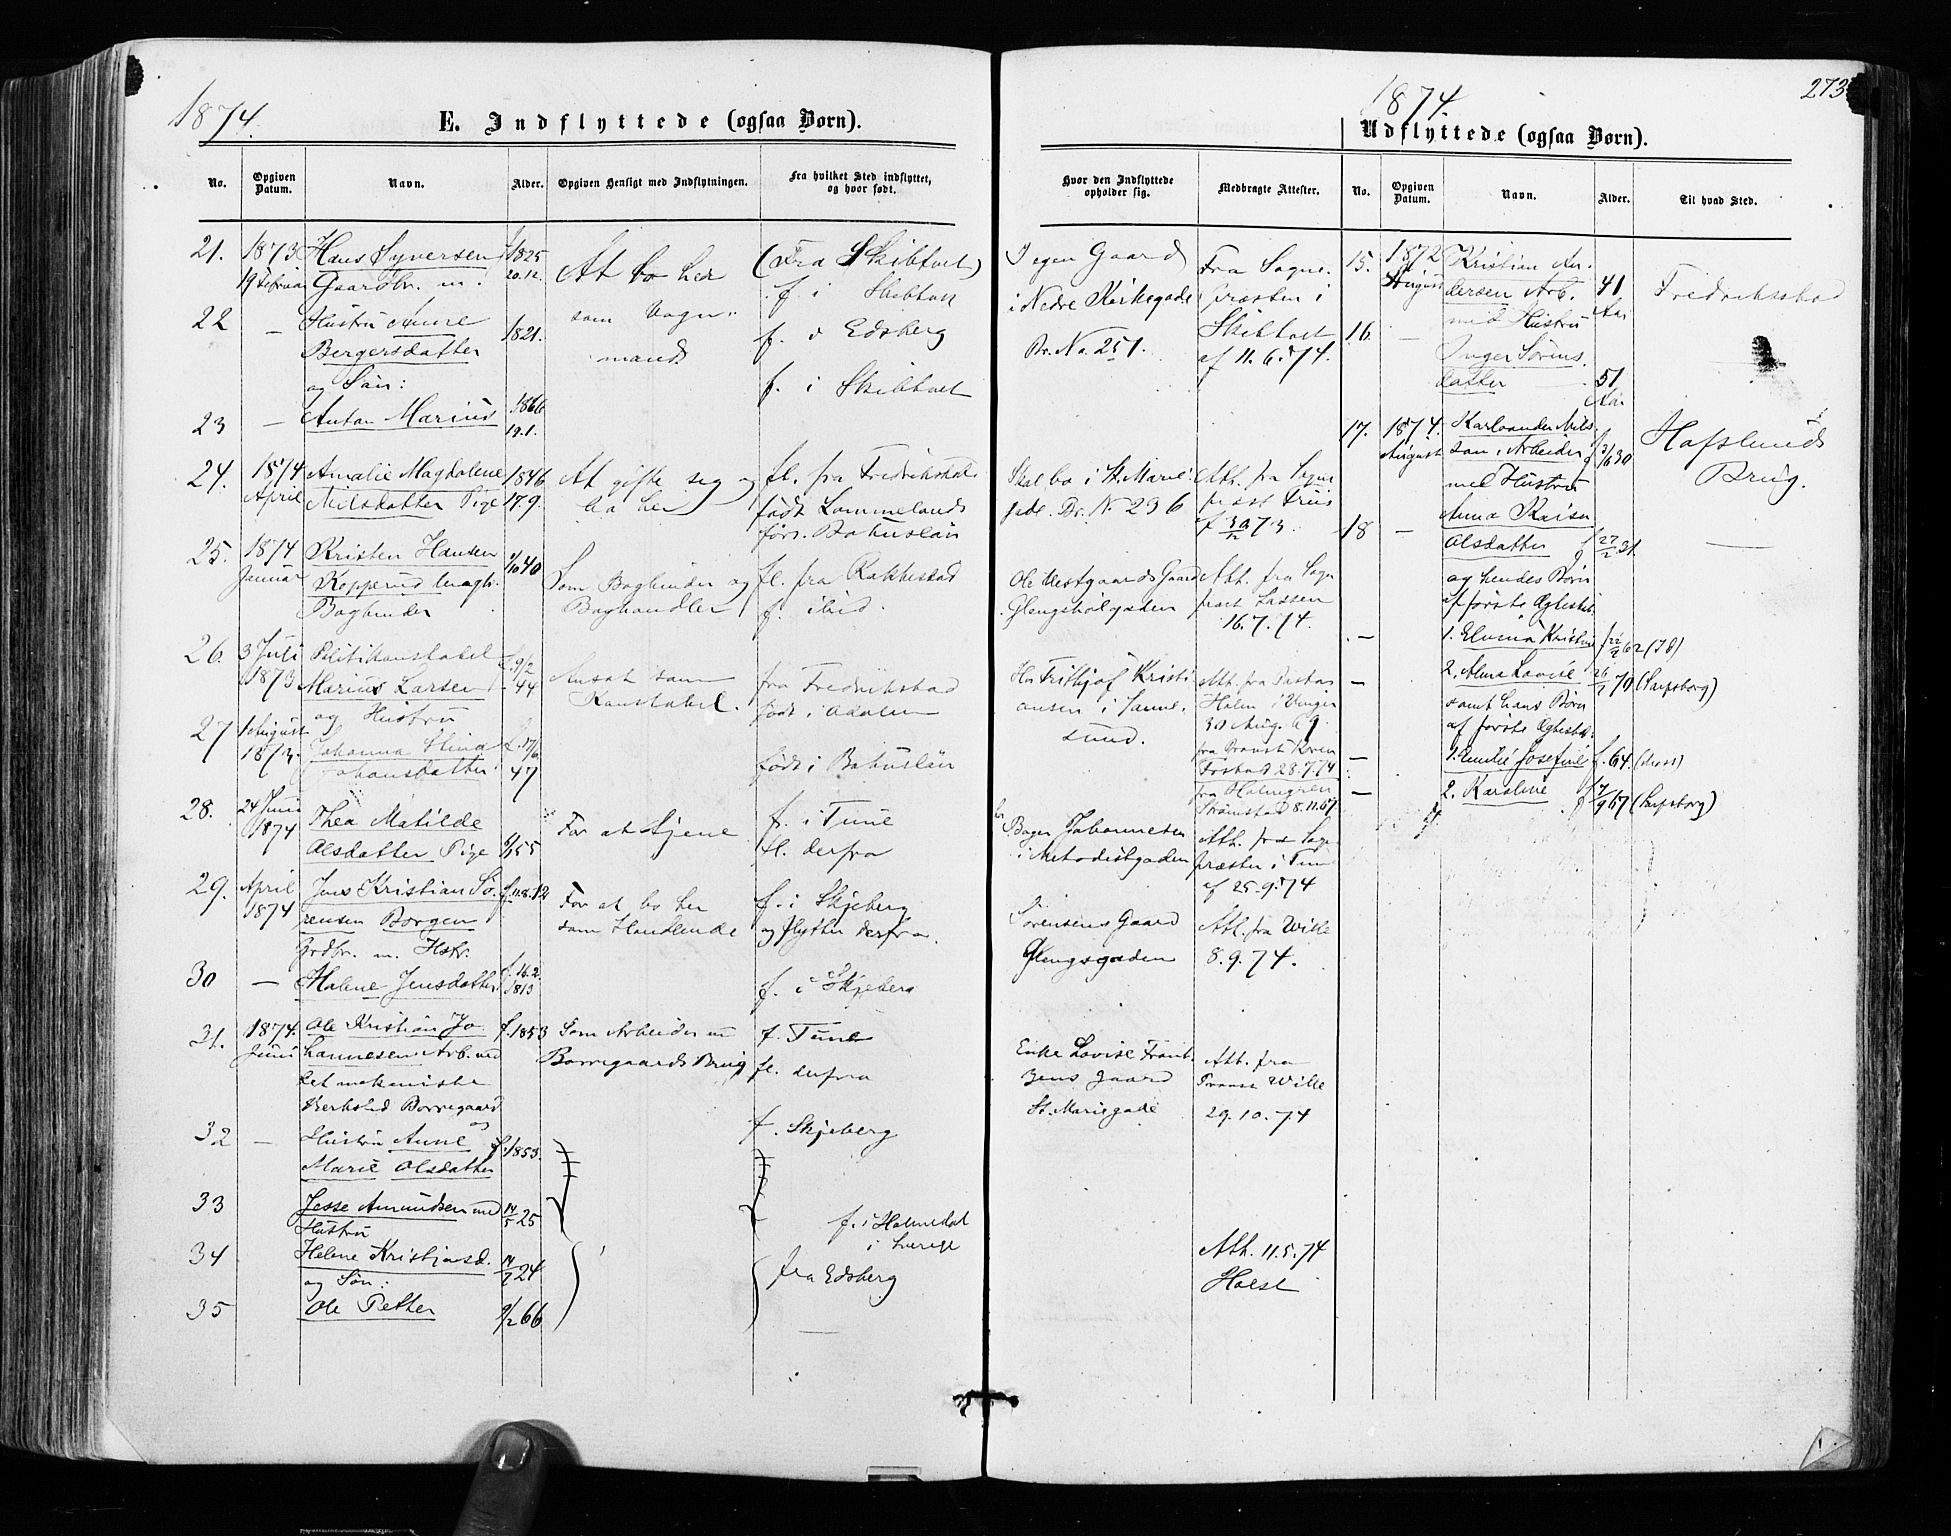 1874.
E. Indflyttede (ogsaa Børn).
No.
Opgiven Datum.
Navn.
Alder.
Opgiven Hensigt med Indflytningen.
Fra hvilket Sted indflyttet, og hvor født.
21. 1873 Hans Syversen f. 1825 At bo her (Fra Skibtvet)
19 Februar Gaardbr. m. 20.12. f. i Skibtvet
22 — Hustru Anne 1821. som Vogn- f. i Edsberg
Bergersdatter mand
og Søn: f. i Skibtvet
23 — Anton Marius 1866
19.1.
24. 1874 Amalie Magdalene 1846 At gifte sig og fl. fra Fredrikstad
April Nilsdatter Pige 17.9. bo her født Lommelands
førs. Bahuslän
25. 1874 Kristen Hansen 1/10 40 Som Bogbinder og fl. fra Rakkestad
Januar Kopperud Ungk. Boghandler f. ibid.
Bogbinder
26. 3 Juli Politikonstabel f. 9/2 Ansat som fra Fredrikstad
1873 Marius Larsen -44 Konstabel. født i Odalen
og Hustru
27 1 August Johanna Stina f. 17/6
1873. Johansdatter 47 født i Bahuslän
28. 24 Juni Thea Matilde For at tjene f. i Tune
1874 Olsdatter Pige 55 fl. derfra
29. April Jens Kristian Sø- f. 11.8.12 For at bo her f. i Skjeberg
1874 rensen Borgen som Handlende og flytter derfra.
Grdbr. m. Hstr.
30 — Malene Jensdatter f. 16.2. f. i Skjeberg
1813
31. 1874. Ole Kristian Jo- f. 1853 Som Arbeider ved f. Tune
Juni hannesen Arb. ved Borregaards Brug fl. derfra
det mekaniske
Verksted Borregaard
og
32 — Hustru Anne f. 1853. f. Skjeberg
Marie Olsdatter
33 Jesse Amundsen med 14/5 25 f. i Holmedal
Hustru i Sverige
34 Helene Kristjansd. 14/7 24 fra Edsberg
og Søn:
35 Ole Petter 9/2 66
273
1874.
Hvor den Indflyttede opholder sig.
Medbragte Attester.
Udflyttede (ogsaa Børn).
No.
Opgiven Datum.
Navn.
Alder.
Til hvad Sted.
I egen Gaard Fra Sogne-
i Nedre Kirkegade præsten i
Br. No. 251. Skibtvet
af 11.6.74.
Skal bo i St. Marie- Att. fra Sogne
gade. Br. N. 236 præst
Ole Vestgaards Gaard Att. fra Sogne
Glengshølgaden præst Lassen
16.7.74.
Hos Frithjof Kristi- Att. fra Pastor
ansen i Sanne- Holm i Vinger
sund. 30 Aug. 69
fra Provst
28.7.74
fra Holmgren
Strømstad 8.11.67
Bager Johannesen Att. fra Sogne
i Metodistgaden præsten i Tune
af 25.9.74
Sørensens Gaard Att. fra Wille
Glengsgaden 8.9.74.
Enke Lovise Frant- Att. fra
zens Gaard Provst Wille
St. Mariegade 29.10.74
Att. 11.5.74
Holst
15. 1872 Kristian An- 41 Fredriksstad
August dersen Arb. Aar
med Hustru
16. — Inger Sørens-
datter 51 —
Aar
17. 1874. Karl Nils-
August son, Arbeider f 3/6 30 Hafslunds
med Hustru Brug.
18 — Anna Kaisa
Olsdatter f 27/2 31. —
og hendes Børn
af første Ægtesk.
— 1. Elvina Kristine f 22/2 62 (Id)
— 2. Alma Lovise 26/7 70 (Sarpsborg)
samt hans Børn
af første Ægtesk.
— 1. Emilie Josefine f. 64 (Moss)
— 2. Karoline f 7/9 67 (Sarpsborg)